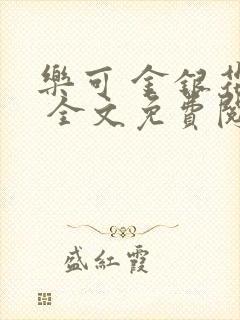 樂可 金銀花
全文免費閱
盛紅霞